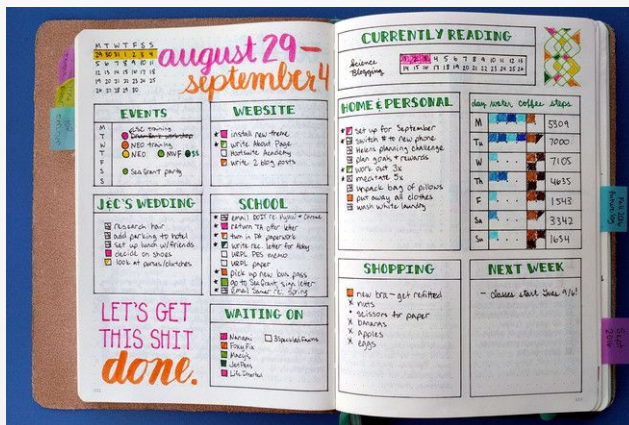 M T W T F S S
29 30 31 1 2 3 4
5 6 7 8 9 10 11
12 13 14 15 16 17 18
19 20 21 22 23 24 25
26 27 28 29 30
august 29 –
september 4
EVENTS
M training
T
W NEO training
T NEO MVF $$
F
S Sea Grant party
S
WEBSITE
install new theme
write About Page
Hootsuite Academy
write 2 blog posts
J&C'S WEDDING
research hair
add parking to hotel
set up lunch w/friends
decide on shoes
look at purses/clutches
SCHOOL
email
return TA offer letter
turn in paperwork
write rec. letter for
URPL PES memo
URPL paper
pick up new bus pass
go to Sea Grant, sign letter
email re: Spring
LET'S GET
THIS SHIT
done.
WAITING ON
Nanami
Macy's
JetPens
CURRENTLY READING
Science
Blogging
1 2 3 4 5 6 7 8 9 10 11 12 13
14 15 16 17 18 19 20 21 22 23 24
HOME & PERSONAL
set up for September
switch # to new phone
Helens planning challenge
plan goals + rewards
work out 3x
meditate 5x
unpack bag of pillows
put away all clothes
wash white laundry
day water coffee steps
M 5309
Tu 7000
W 7105
Th 4635
F 1543
Sa 3342
Su 1654
SHOPPING
new bra - get refitted
x nuts
• scissors for paper
x bananas
x apples
x eggs
NEXT WEEK
– classes start Tues 9/6!
Sept
2016